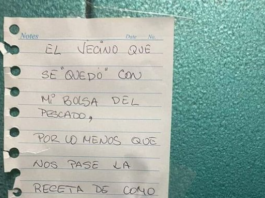 Notes
Date No.
EL VECINO QUE
SE "QUEDÓ" CON
Mª BOLSA DEL
PESCADO,
POR LO MENOS QUE
NOS PASE LA
RECETA DE COMO